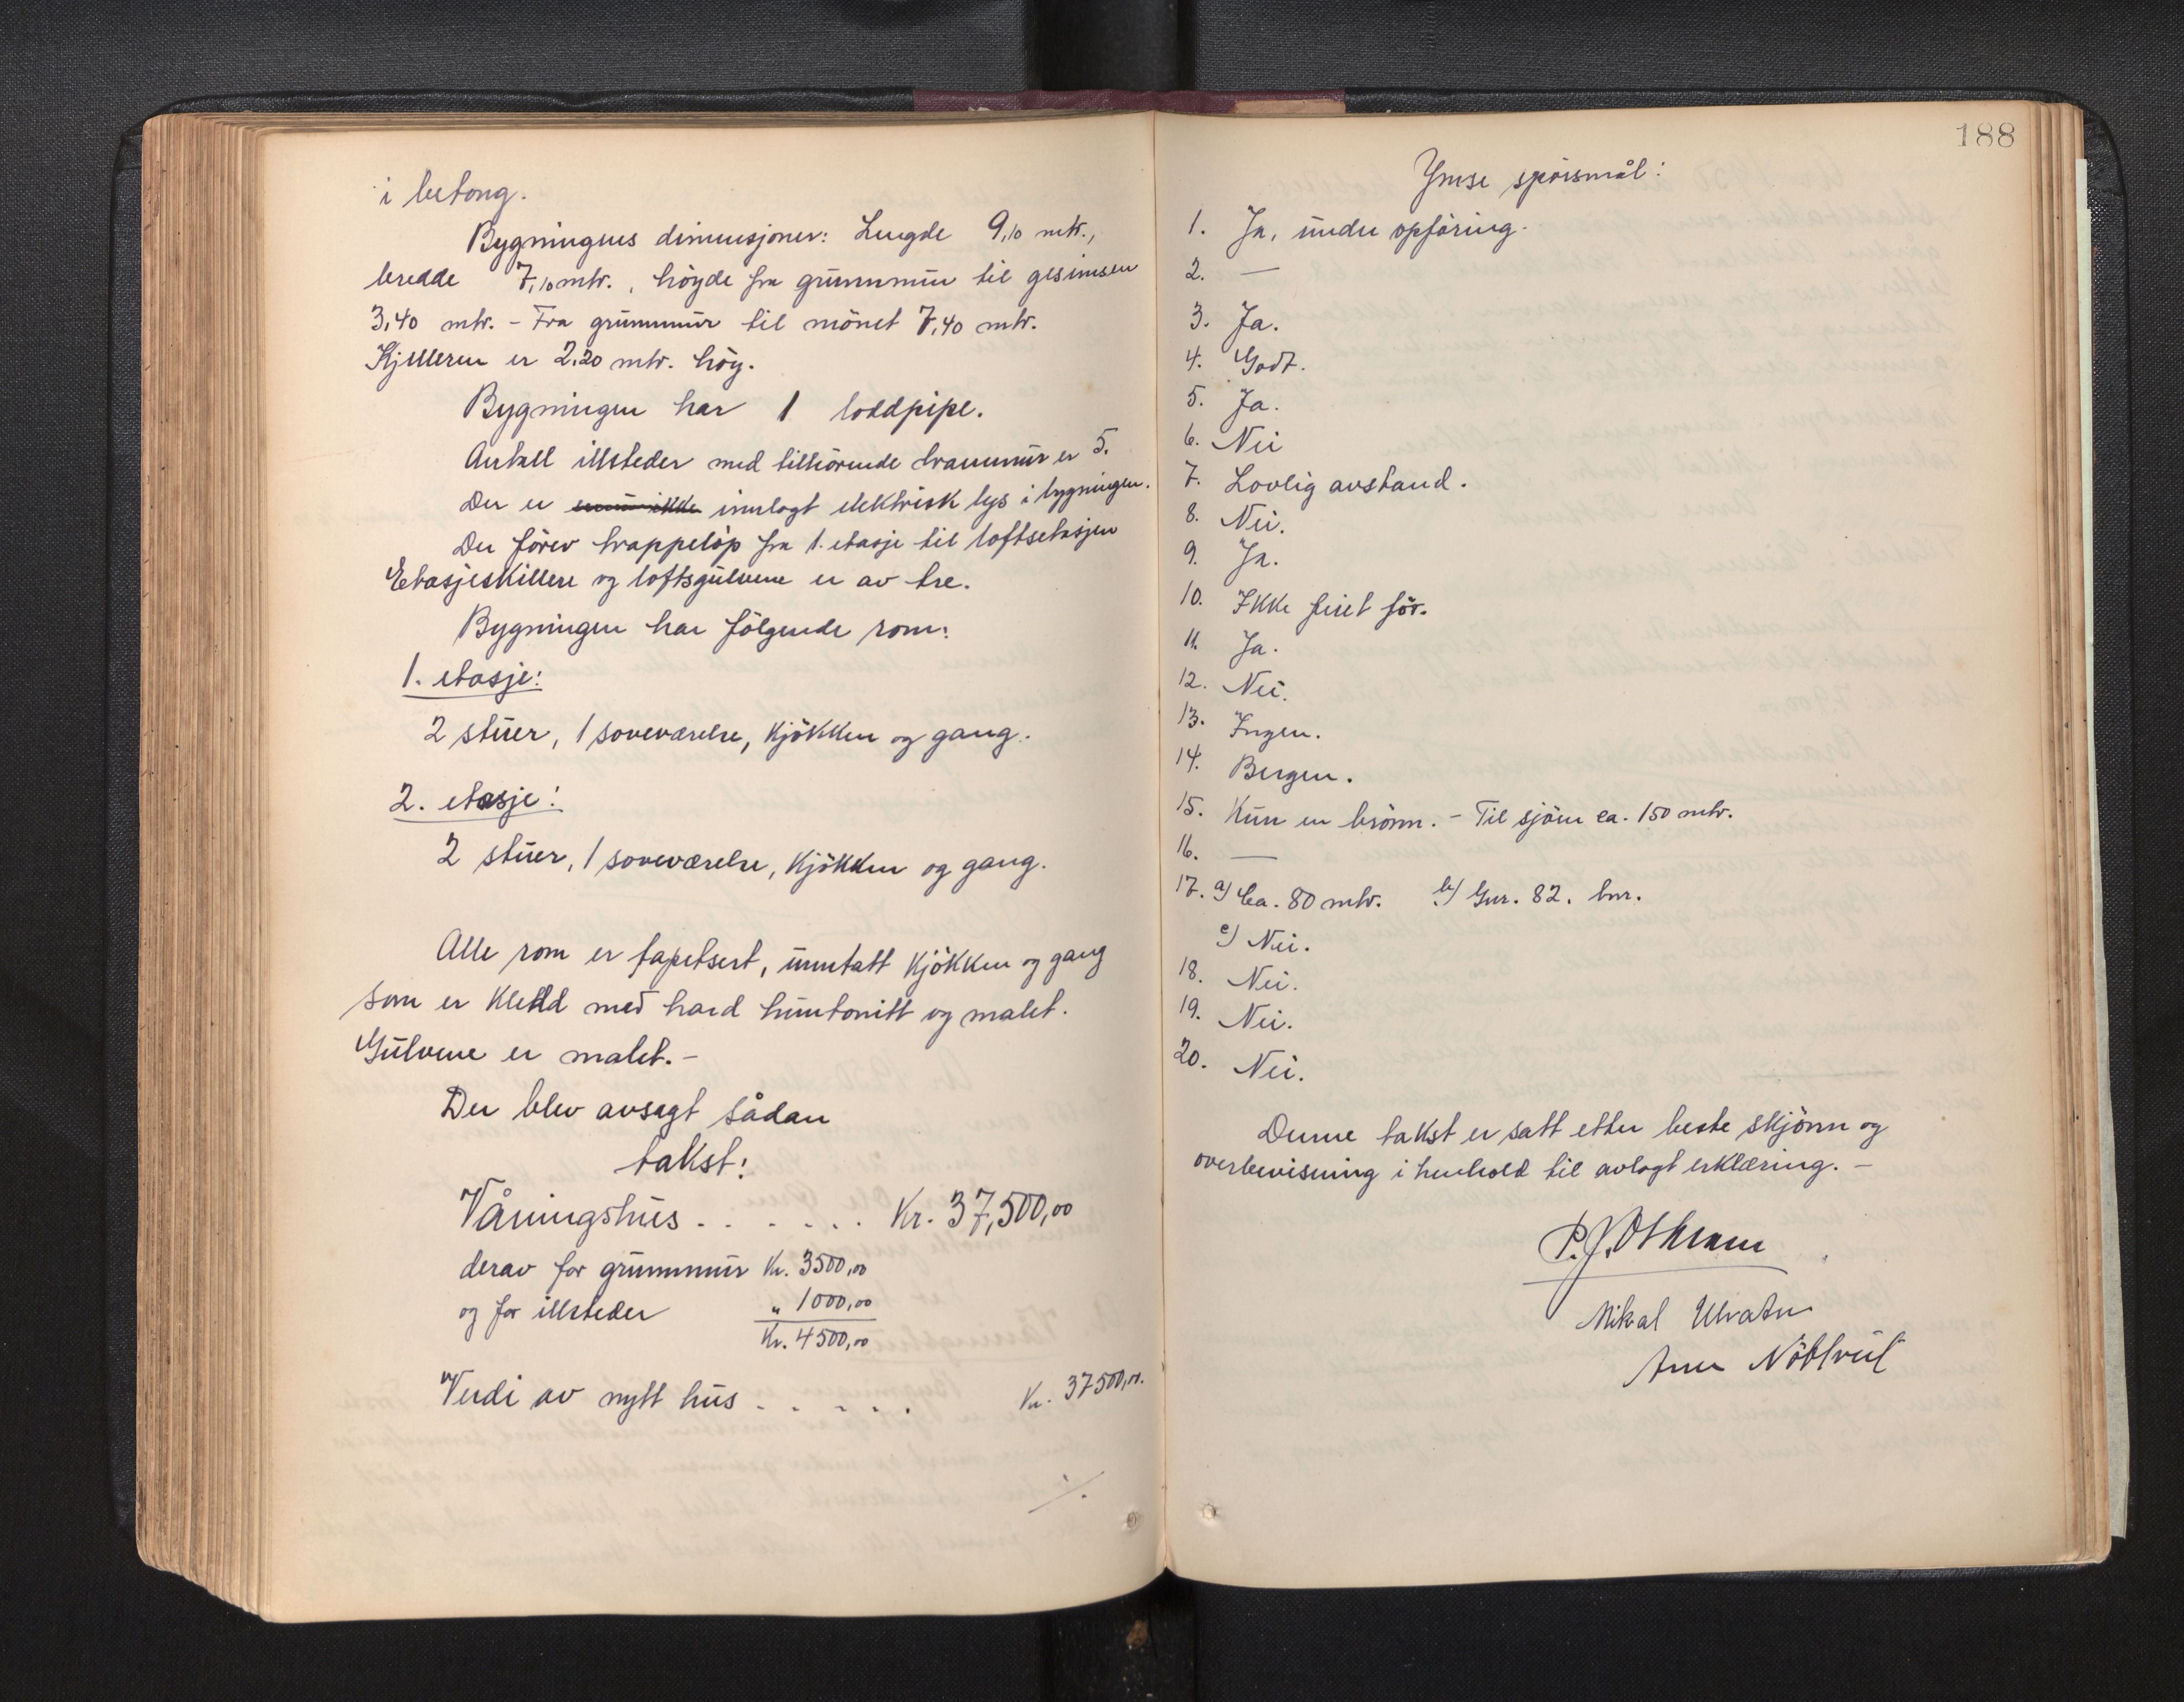 i betong.
Bygningens dimensjoner: Lengde 9,10 mtr.,
bredde 7,10 mtr., höyde fra grunnmur til gesimsen
3,40 mtr. - Fra grunnmur til mönet 7,40 mtr.
Kjelleren er 2,20 mtr. höy.
Bygningen har 1 loddpipe.
Antall illsteder med tilhörende brannmur er 5.
Der er ikke innlagt elektrisk lys i bygningen.
Der förer trappelöp fra 1. etasje til loftsetasjen
Etasjeskillere og loftsgulvene er av tre.
Bygningen har fölgende rom:
1. etasje:
2 stuer, 1 soveværelse, kjökken og gang.
2. etasje:
2 stuer, 1 soveværelse, kjökken og gang.
Alle rom er tapetsert, unntatt kjökken og gang
som er kledd med hard huntonitt og malet.
Gulvene er malet. -
Der blev avsagt sådan
takst:
Våningshus . . . . . . Kr. 37,500,00
derav for grunnmur Kr. 3500,00
og for illsteder " 1000,00
Kr. 4500,00
Verdi av nytt hus . . . . . Kr. 37500,00.
./.
188
Ymse spörsmål:
1. Ja, under opföring.
2. —
3. Ja.
4. Godt.
5. Ja.
6. Nei
7. Lovlig avstand.
8. Nei.
9. Ja.
10. Ikke feiet för.
11. Ja.
12. Nei.
13. Ingen.
14. Bergen.
15. Kun en brönn. - Til sjöen ca. 150 mtr.
16. —
17. a) Ca. 80 mtr. b) Gnr. 82. bnr.
c) Nei.
18. Nei.
19. Nei.
20. Nei.
Denne takst er satt etter beste skjönn og
overbevisning i henhold til avlagt erklæring. -
P. J. Othman
Mikal Ulvatn
Nöttveit